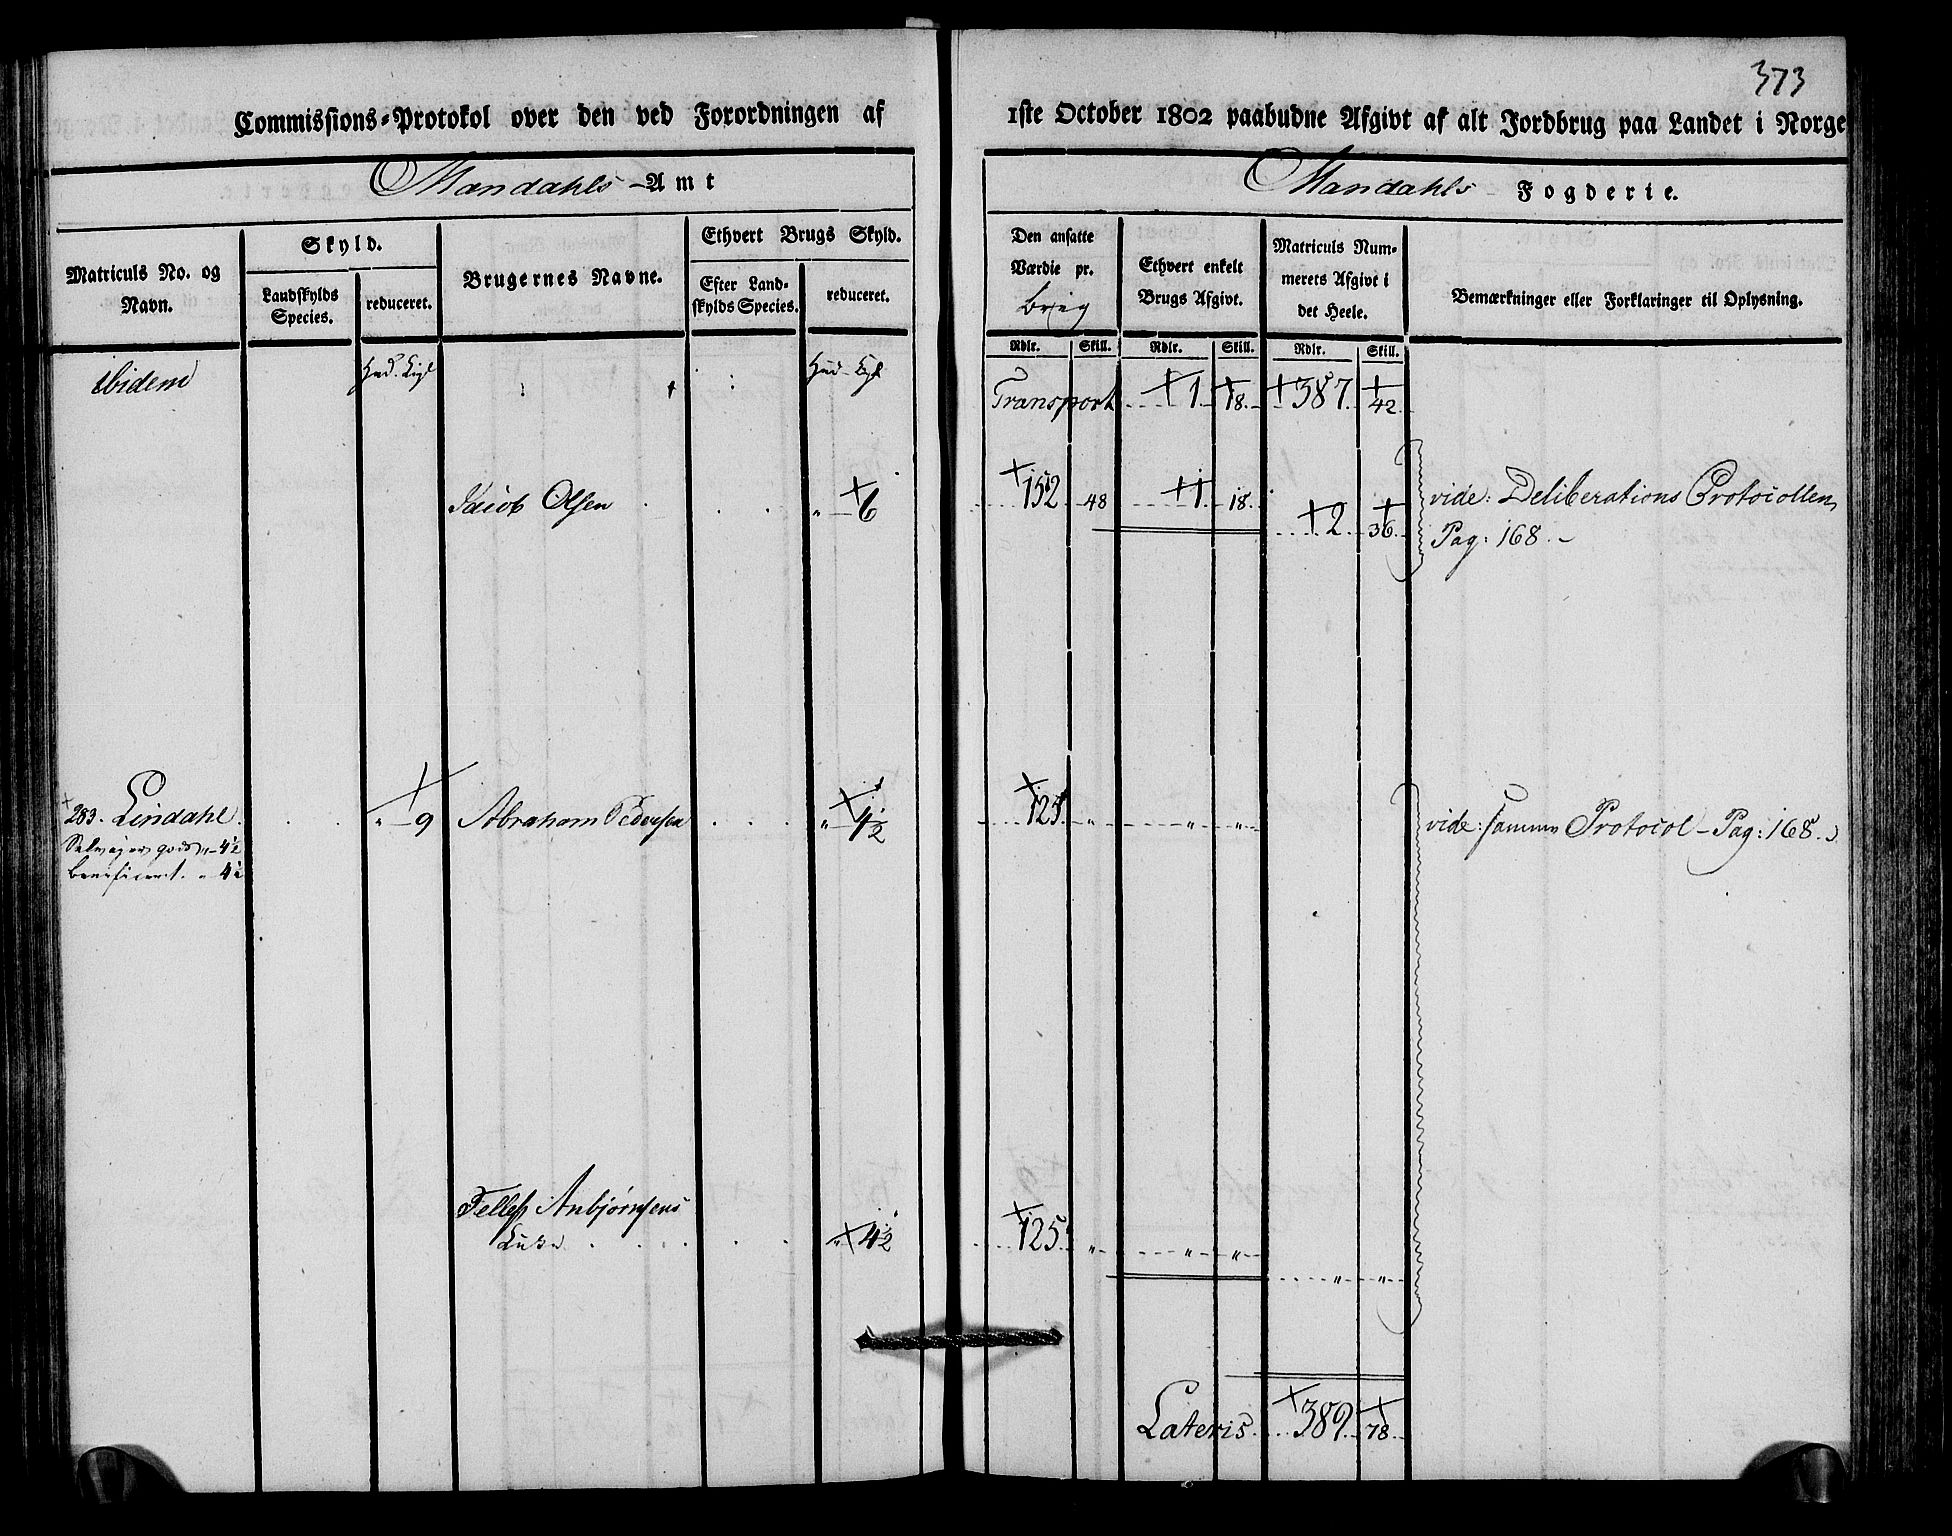 373
Commissions-Protokol over den ved Forordningen af 1ste October 1802 paabudne Afgivt af alt Jordbrug paa Landet i Norge
Mandahls-Amt
Mandahls Fogderie.
Matriculs No. og Navn.
Skyld.
Landskylds Species.
reduceret.
Brugernes Navne.
Ethvert Brugs Skyld.
Efter Landskylds Species.
reduceret.
Den ansatte Værdie pr.
Ethvert enkelt Brugs Afgivt.
Matriculs Nummerets Afgivt i det Heele.
Bemærkninger eller Forklaringer til Oplysning.
Rdlr. Skill. Rdlr. Skill. Rdlr. Skill.
ibidem
Hud. Hud.
Transport 1 18. 387. 42
Jacob Olsen " 6 152 48 1 18.
2 36.
vide: Deliberations Protocollen
Pag: 168.
283. Lindahl. " 9 Abraham Pedersen " 4½ 125 " " "
vide: samme Protocol Pag: 168.
Selveyergods " 4½
beneficeret. " 4½
Tellef Anbjørnsens
" 4½ 125 " " "
" "
Lateris 389. 78.